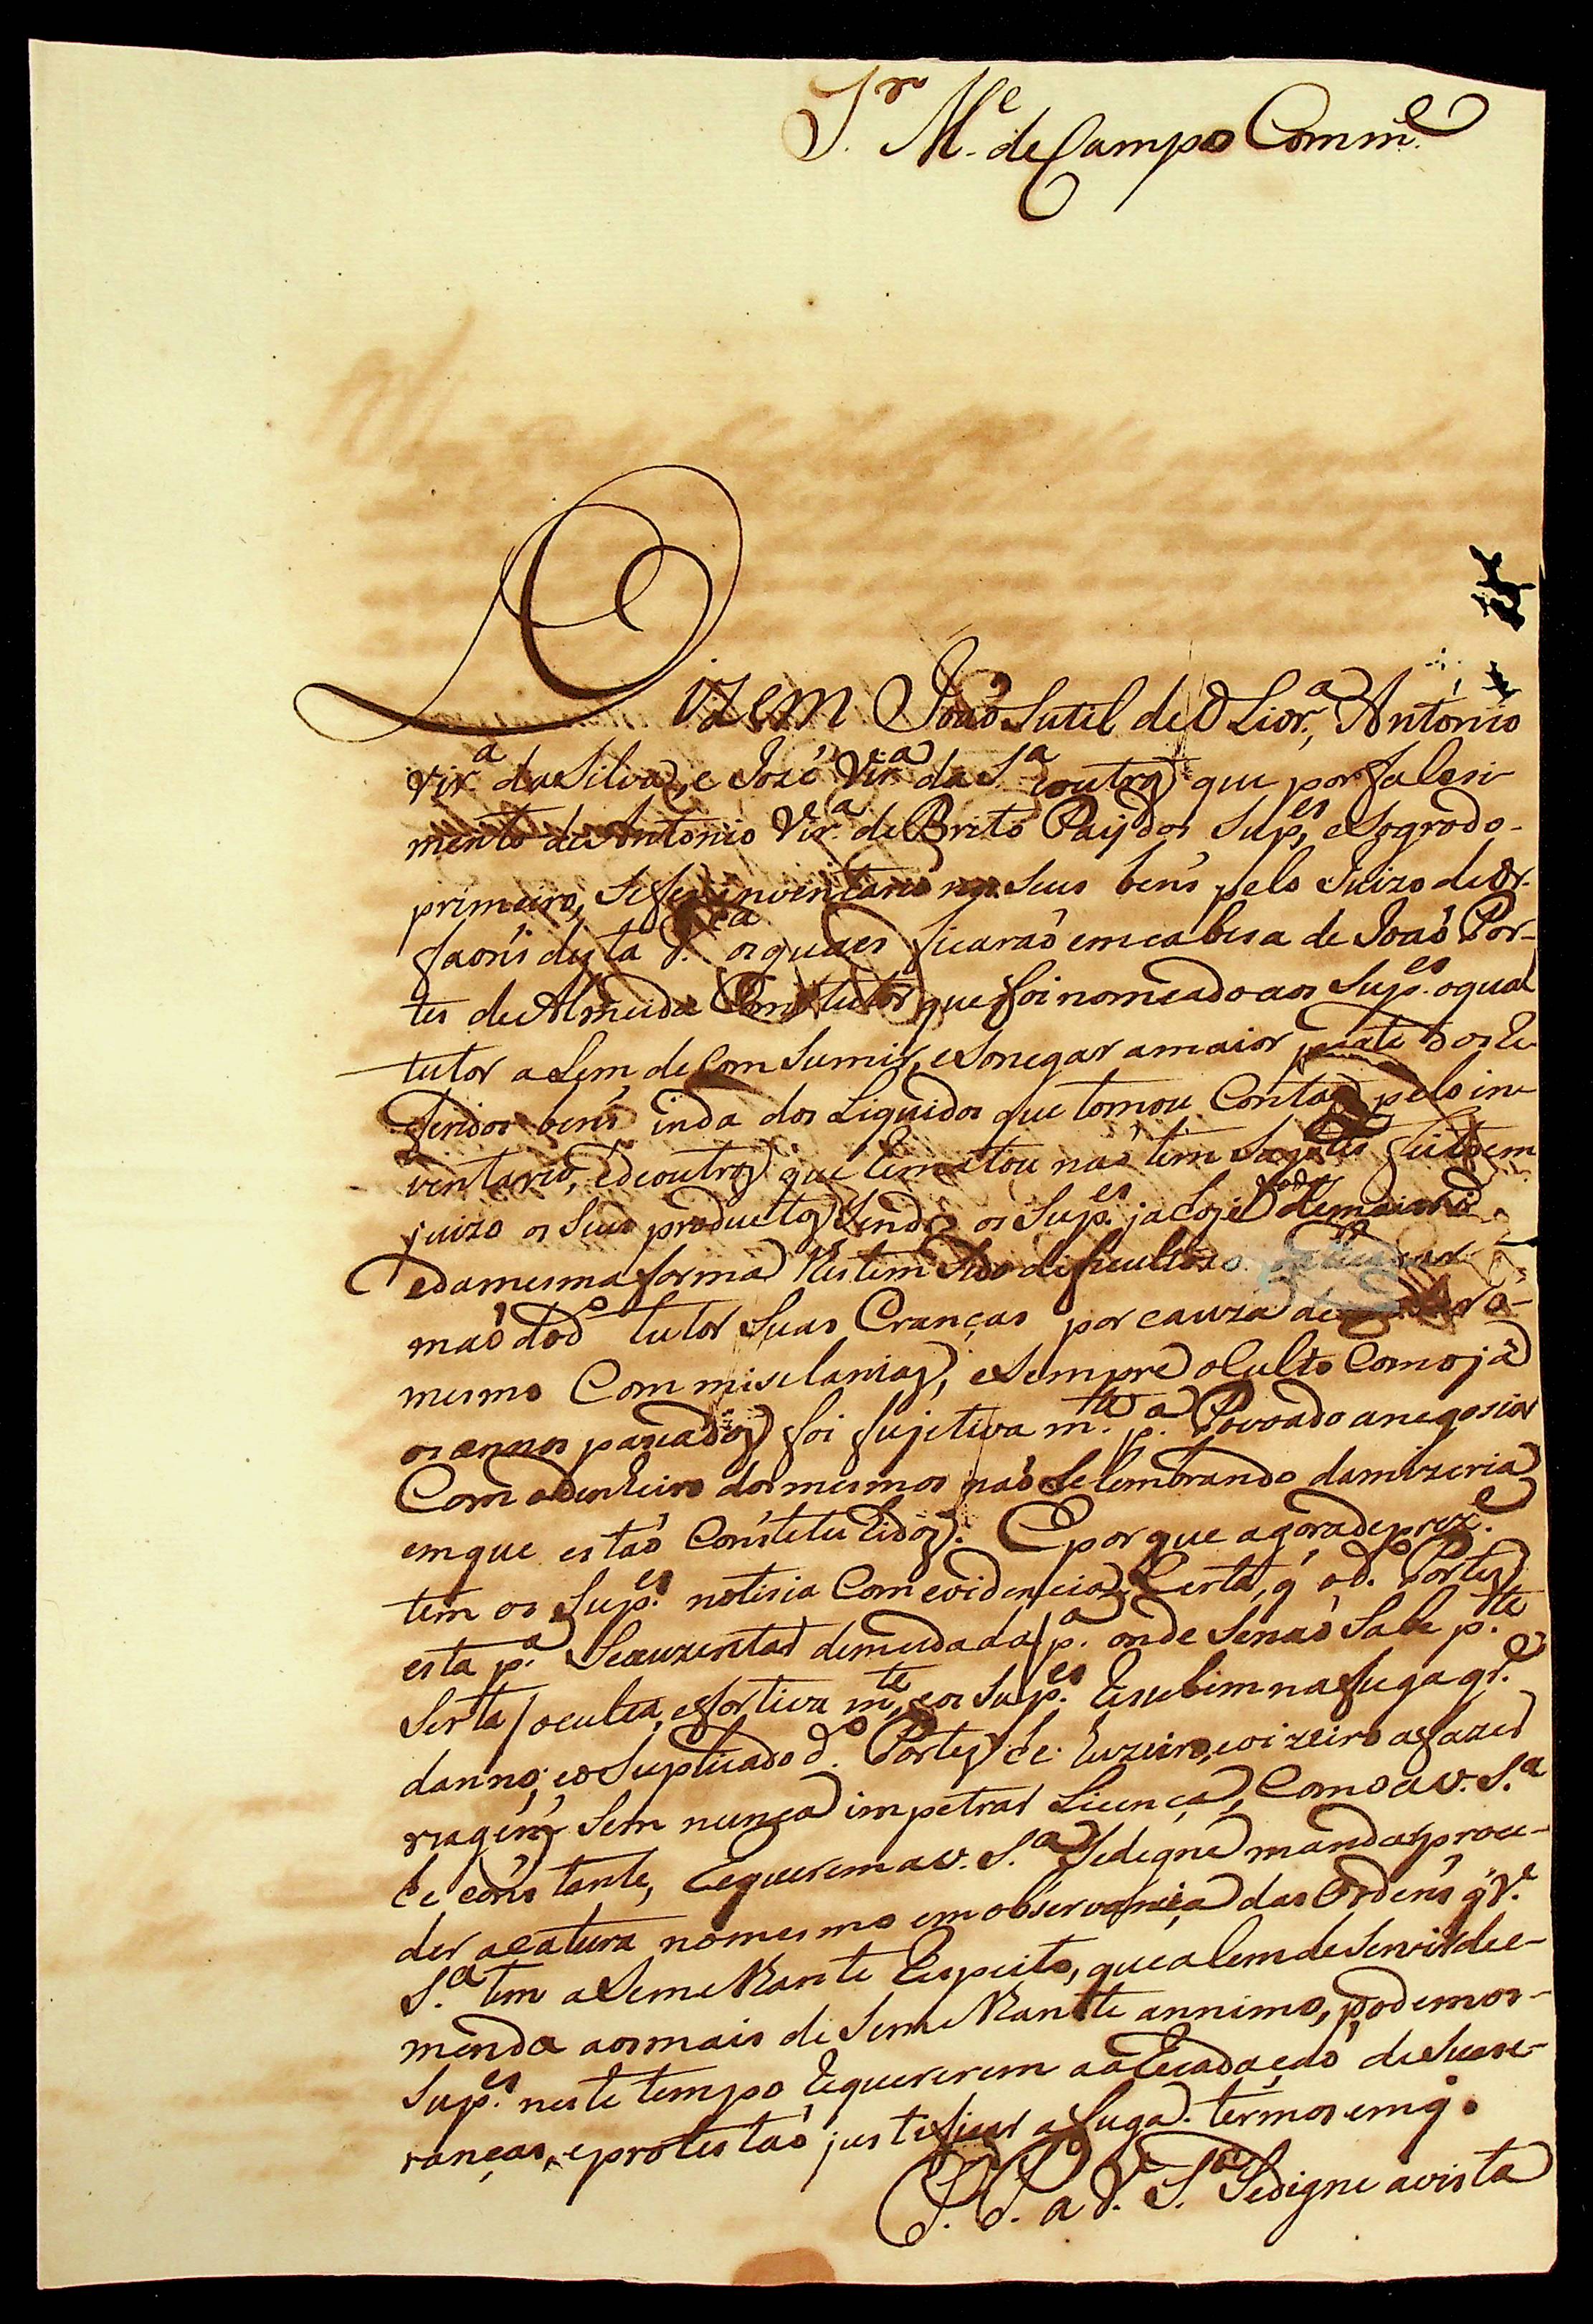 Sr. Me. de Campo Comme.
Dizem João Sutil de OLivra., Antonio
Vira. da Silva, e Jozé Vira. da Sa. e outros que por falesi-
mento de Antonio Vira. de Brito Paij dos Supes., e Sogro do-
primeiro, Se fes inventario nos Seus bens pelo Juizo de Or-
faons desta Va. os quaes ficarão em cabesa de João Por-
tes de Almeida Como tutor que foi nomeado aos Supes. o qual
tutor aLem de ComSumir, e Sonegar a maior parte dos Re-
feridos bens inda dos Liquidos que tomou Contas pelo in-
ventario, e de outros que Rematou não tem feito em
juizo os Seus productos Sendo os Supes. ja hoje todos
e da mesma forma lhes tem Sido dificultozo
mão do do. tutor Suas Eranças por cauza de
mesmo Com miselanias, e Sempre oCulto Como já
os annos pasados foi fujetivamte. pa. Povoado a negosiar
Com o dinheiro dos mesmos não Se lembrando da mizeria
em que estão Constetuhidos. E porque agora de prezte.
tem os Supes. notisia Com evidencia Certa, q' o do. Portes
esta pa. Se auzentar de mudada / pa. onde Se não Sabe pte.
Serta / oculta, e fortivamte., e os Supes. Resebim na fuga gre.
danno; e o Suplicado do. Portes he Uzeiro, e vizeiro a fazer
viagens Sem nunca impetrar Licença, Como a V. Sa.
he constante, Requerem a V. Sa. Se digne mandar proce-
der a catura no mesmo em observancia das Ordens q' V.
Sa. tem a Semelhante Respeito, que alem de Servir de e-
menda aos mais de Semelhante annimo, podem os-
Supes. neste tempo Requererem a aRecadação de Suas e-
ranças, e protestão justeficar a fuga. termos em q'.
P. P. a V. Sa. Se digne a vista